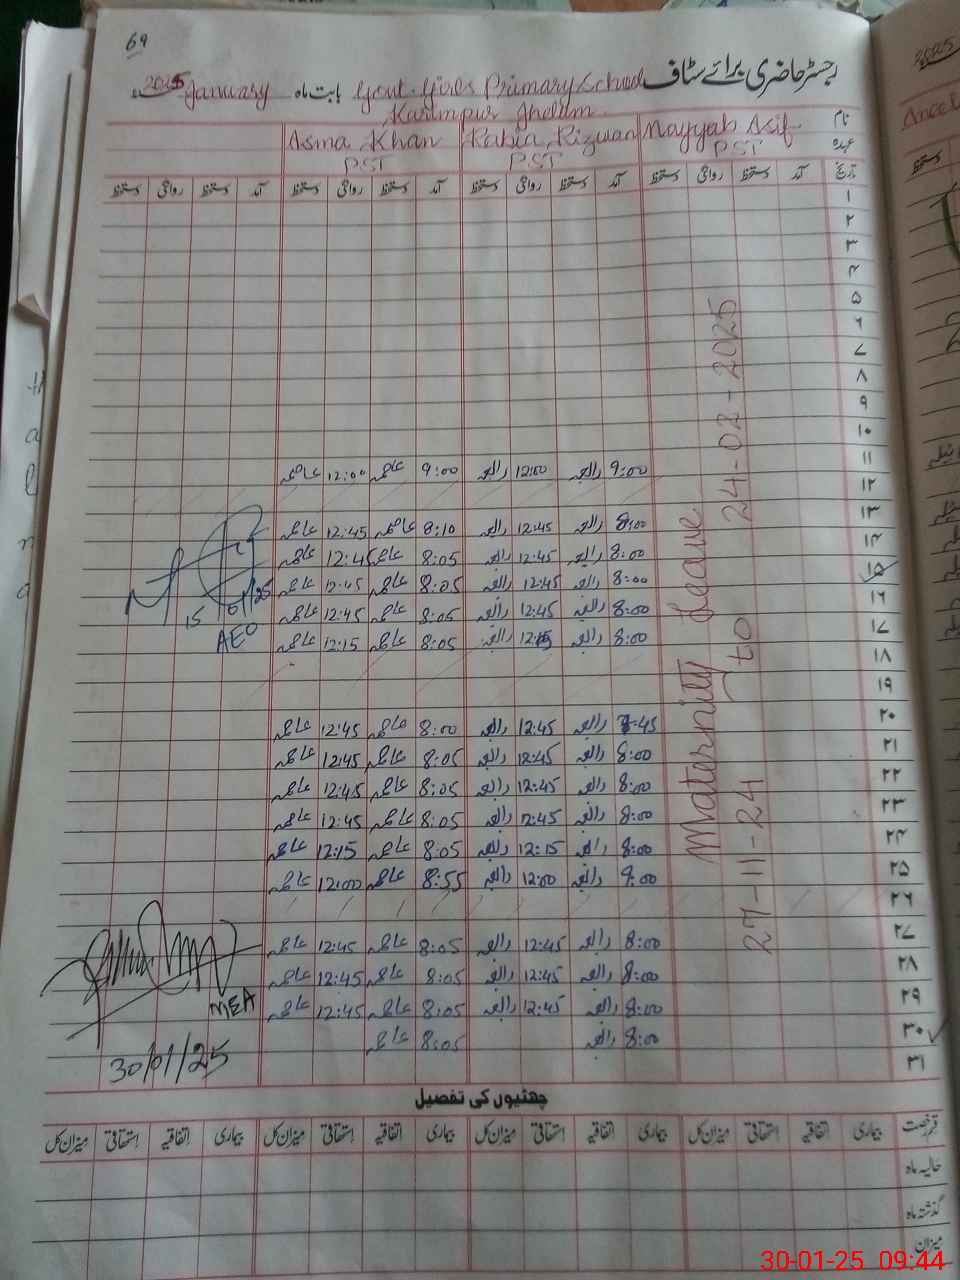 69
رجسٹر حاضری برائے سٹاف Govt. Girls Primary School بابت ماہ January 2025
Karimpur Jhelum
نام Nayyab Asif Rabia Rizwan Asma Khan
عہدہ PST PST PST
تاریخ آمد دستخط روانگی دستخط آمد دستخط روانگی دستخط آمد دستخط روانگی دستخط آمد دستخط روانگی دستخط
۱
۲
۳
۴
۵
۶
۷
۸
۹
۱۰
۱۱ 9:00 رابعہ 12:00 رابعہ 9:00 عاصمہ 12:00 عاصمہ
۱۲
۱۳ 8:00 رابعہ 12:45 رابعہ 8:10 عاصمہ 12:45 عاصمہ
۱۴ 8:00 رابعہ 12:45 رابعہ 8:05 عاصمہ 12:45 عاصمہ
۱۵ 8:00 رابعہ 12:45 رابعہ 8:05 عاصمہ 12:45 عاصمہ
۱۶ 8:00 رابعہ 12:45 رابعہ 8:05 عاصمہ 12:45 عاصمہ
۱۷ 8:00 رابعہ 12:15 رابعہ 8:05 عاصمہ 12:15 عاصمہ
۱۸
۱۹
۲۰ 7:45 رابعہ 12:45 رابعہ 8:00 عاصمہ 12:45 عاصمہ
۲۱ 8:00 رابعہ 12:45 رابعہ 8:05 عاصمہ 12:45 عاصمہ
۲۲ 8:00 رابعہ 12:45 رابعہ 8:05 عاصمہ 12:45 عاصمہ
۲۳ 8:00 رابعہ 12:45 رابعہ 8:05 عاصمہ 12:45 عاصمہ
۲۴ 8:00 رابعہ 12:15 رابعہ 8:05 عاصمہ 12:15 عاصمہ
۲۵ 9:00 رابعہ 12:00 رابعہ 8:55 عاصمہ 12:00 عاصمہ
۲۶
۲۷ 8:00 رابعہ 12:45 رابعہ 8:05 عاصمہ 12:45 عاصمہ
۲۸ 8:00 رابعہ 12:45 رابعہ 8:05 عاصمہ 12:45 عاصمہ
۲۹ 8:00 رابعہ 12:45 رابعہ 8:05 عاصمہ 12:45 عاصمہ
۳۰ 8:00 رابعہ 8:05 عاصمہ
۳۱
Maternity Leave
27-11-24 to 24-02-2025
15/01/25
AEO
MEA
30/01/25
چھٹیوں کی تفصیل
قسم رخصت بیماری اتفاقیہ استحقاقی میزان کل بیماری اتفاقیہ استحقاقی میزان کل بیماری اتفاقیہ استحقاقی میزان کل بیماری اتفاقیہ استحقاقی میزان کل
حالیہ ماہ
گذشتہ ماہ
میزان
30-01-25 09:44